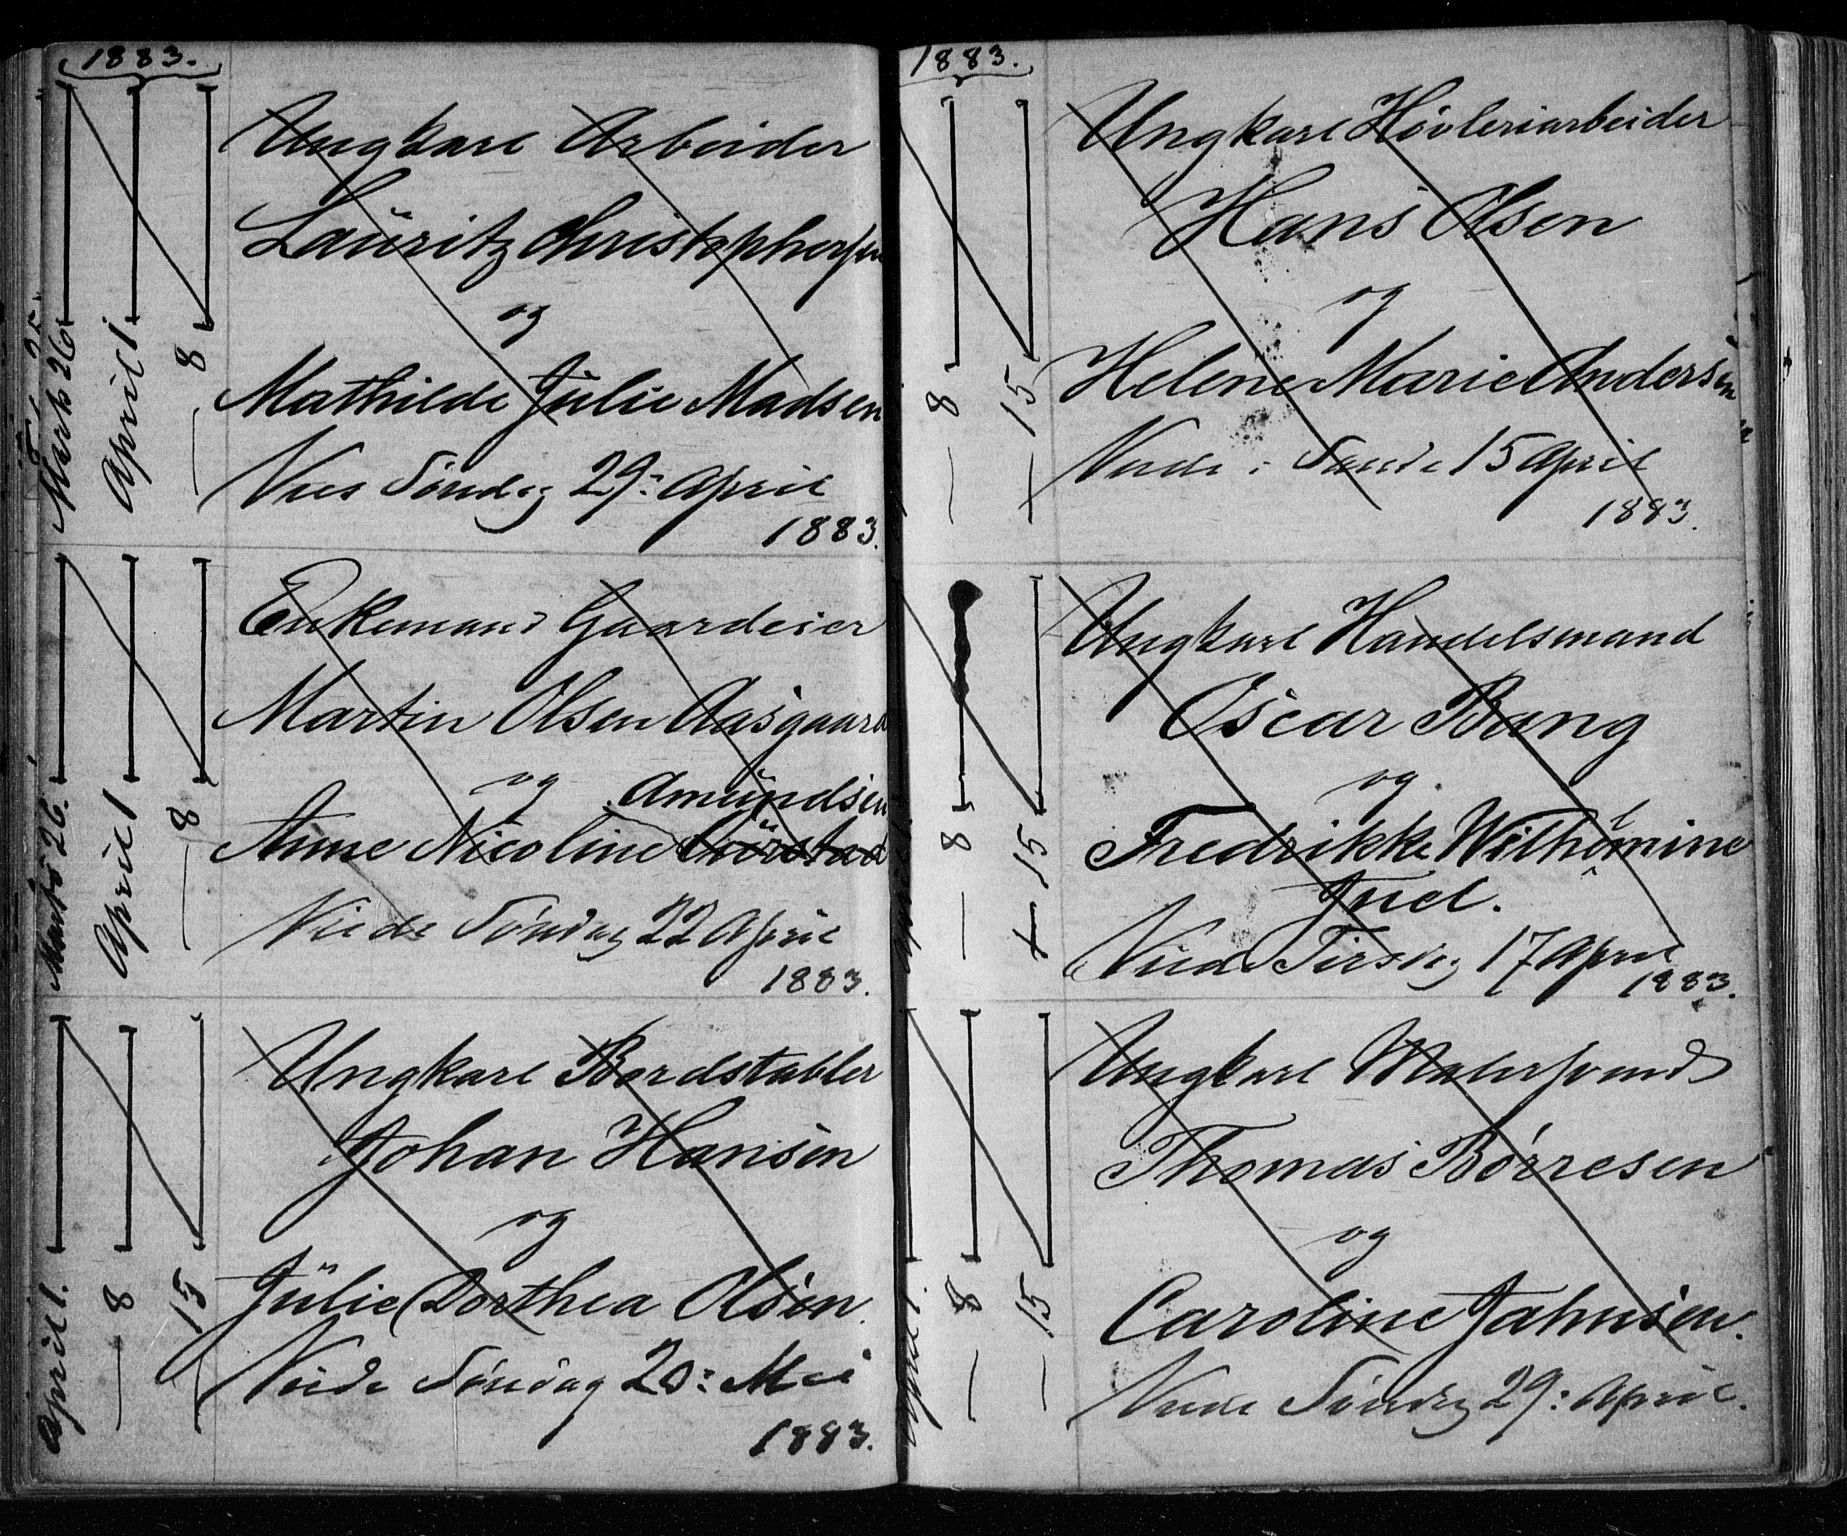 1883.
Marts 26
April 1
— 8
Ungkarl Arbeider
Lauritz Christophersen
og
Mathilde Julie Madsen
Vies Søndag 29: April
1883.
Marts 26.
April 1
— 8
Enkemand Gaardeier
Martin Olsen Aasgaard
og Amundsen
Anne Nicoline
Viede Søndag 22 April
1883.
April 1.
— 8
— 15
Ungkarl Bordstabler
Johan Hansen
og
Julie Dorthea Olsen.
Viede Søndag 20: Mai
1883.
1883.
— 8
— 15
Ungkarl Høvleriarbeider
Hans Olsen
og
Helene Marie Andersen
Viede i Sande 15 April
1883.
— 8
— 15
Ungkarl Handelsmand
Oscar Bang
og
Fredrikke Wilhelmine
Juel.
Viede Tirsdag 17 April
1883.
April 1.
— 8
— 15
Ungkarl Malersvend
Thomas Børresen
og
Caroline Jahnsen.
Viede Søndag 29: April.